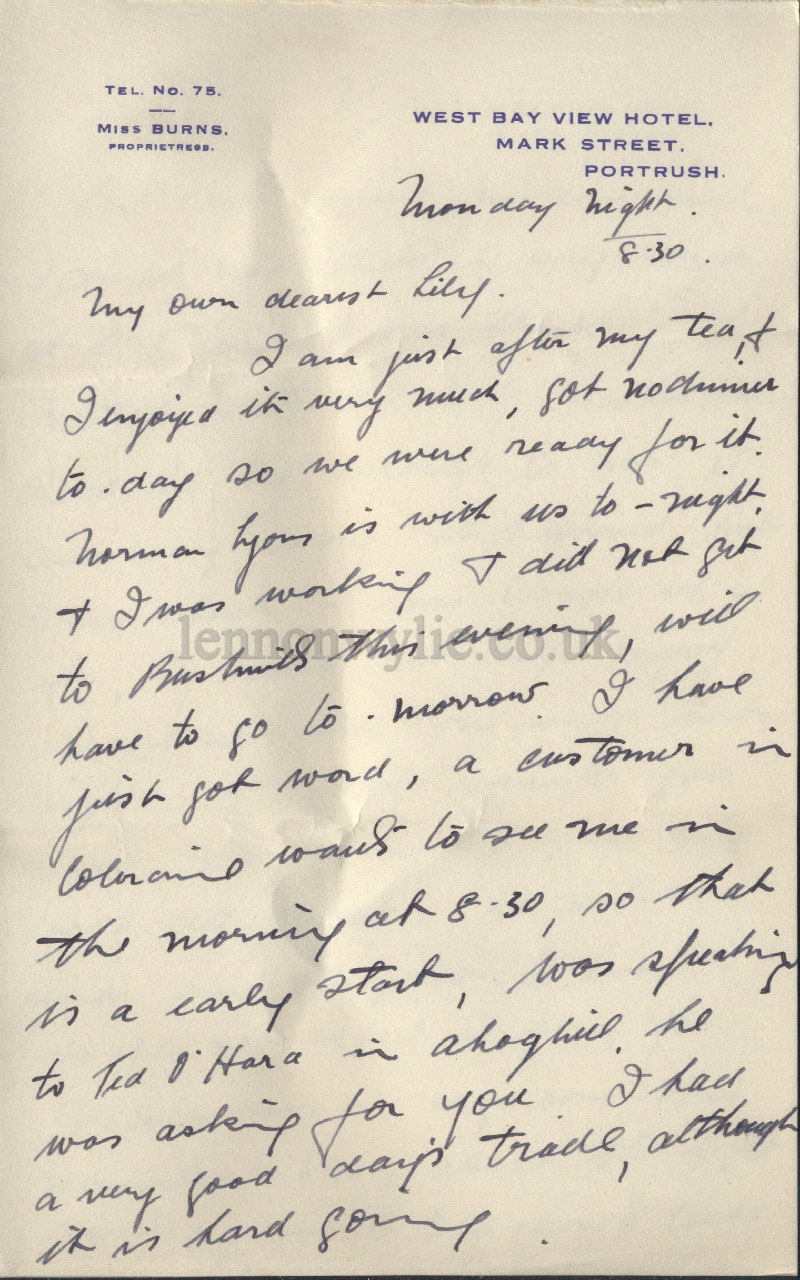 TEL. NO. 75.
MISS BURNS.
PROPRIETRESS.
WEST BAY VIEW HOTEL,
MARK STREET,
PORTRUSH.
Monday Night.
8.30.
My own dearest Lily.
I am just after my tea, &
I enjoyed it very much, got no dinner
to.day so we were ready for it.
Norman Lyons is with us to-night,
& I was working & did not get
to Bushmills this evening, will
have to go to.morrow. I have
just got word, a customer in
Coleraine wants to see me in
the morning at 8.30, so that
is a early start, was speaking
to Ted O'Hara in Ahoghill, he
was asking for you I had
a very good day's trade, although
it is hard going.
lennonwylie.co.uk